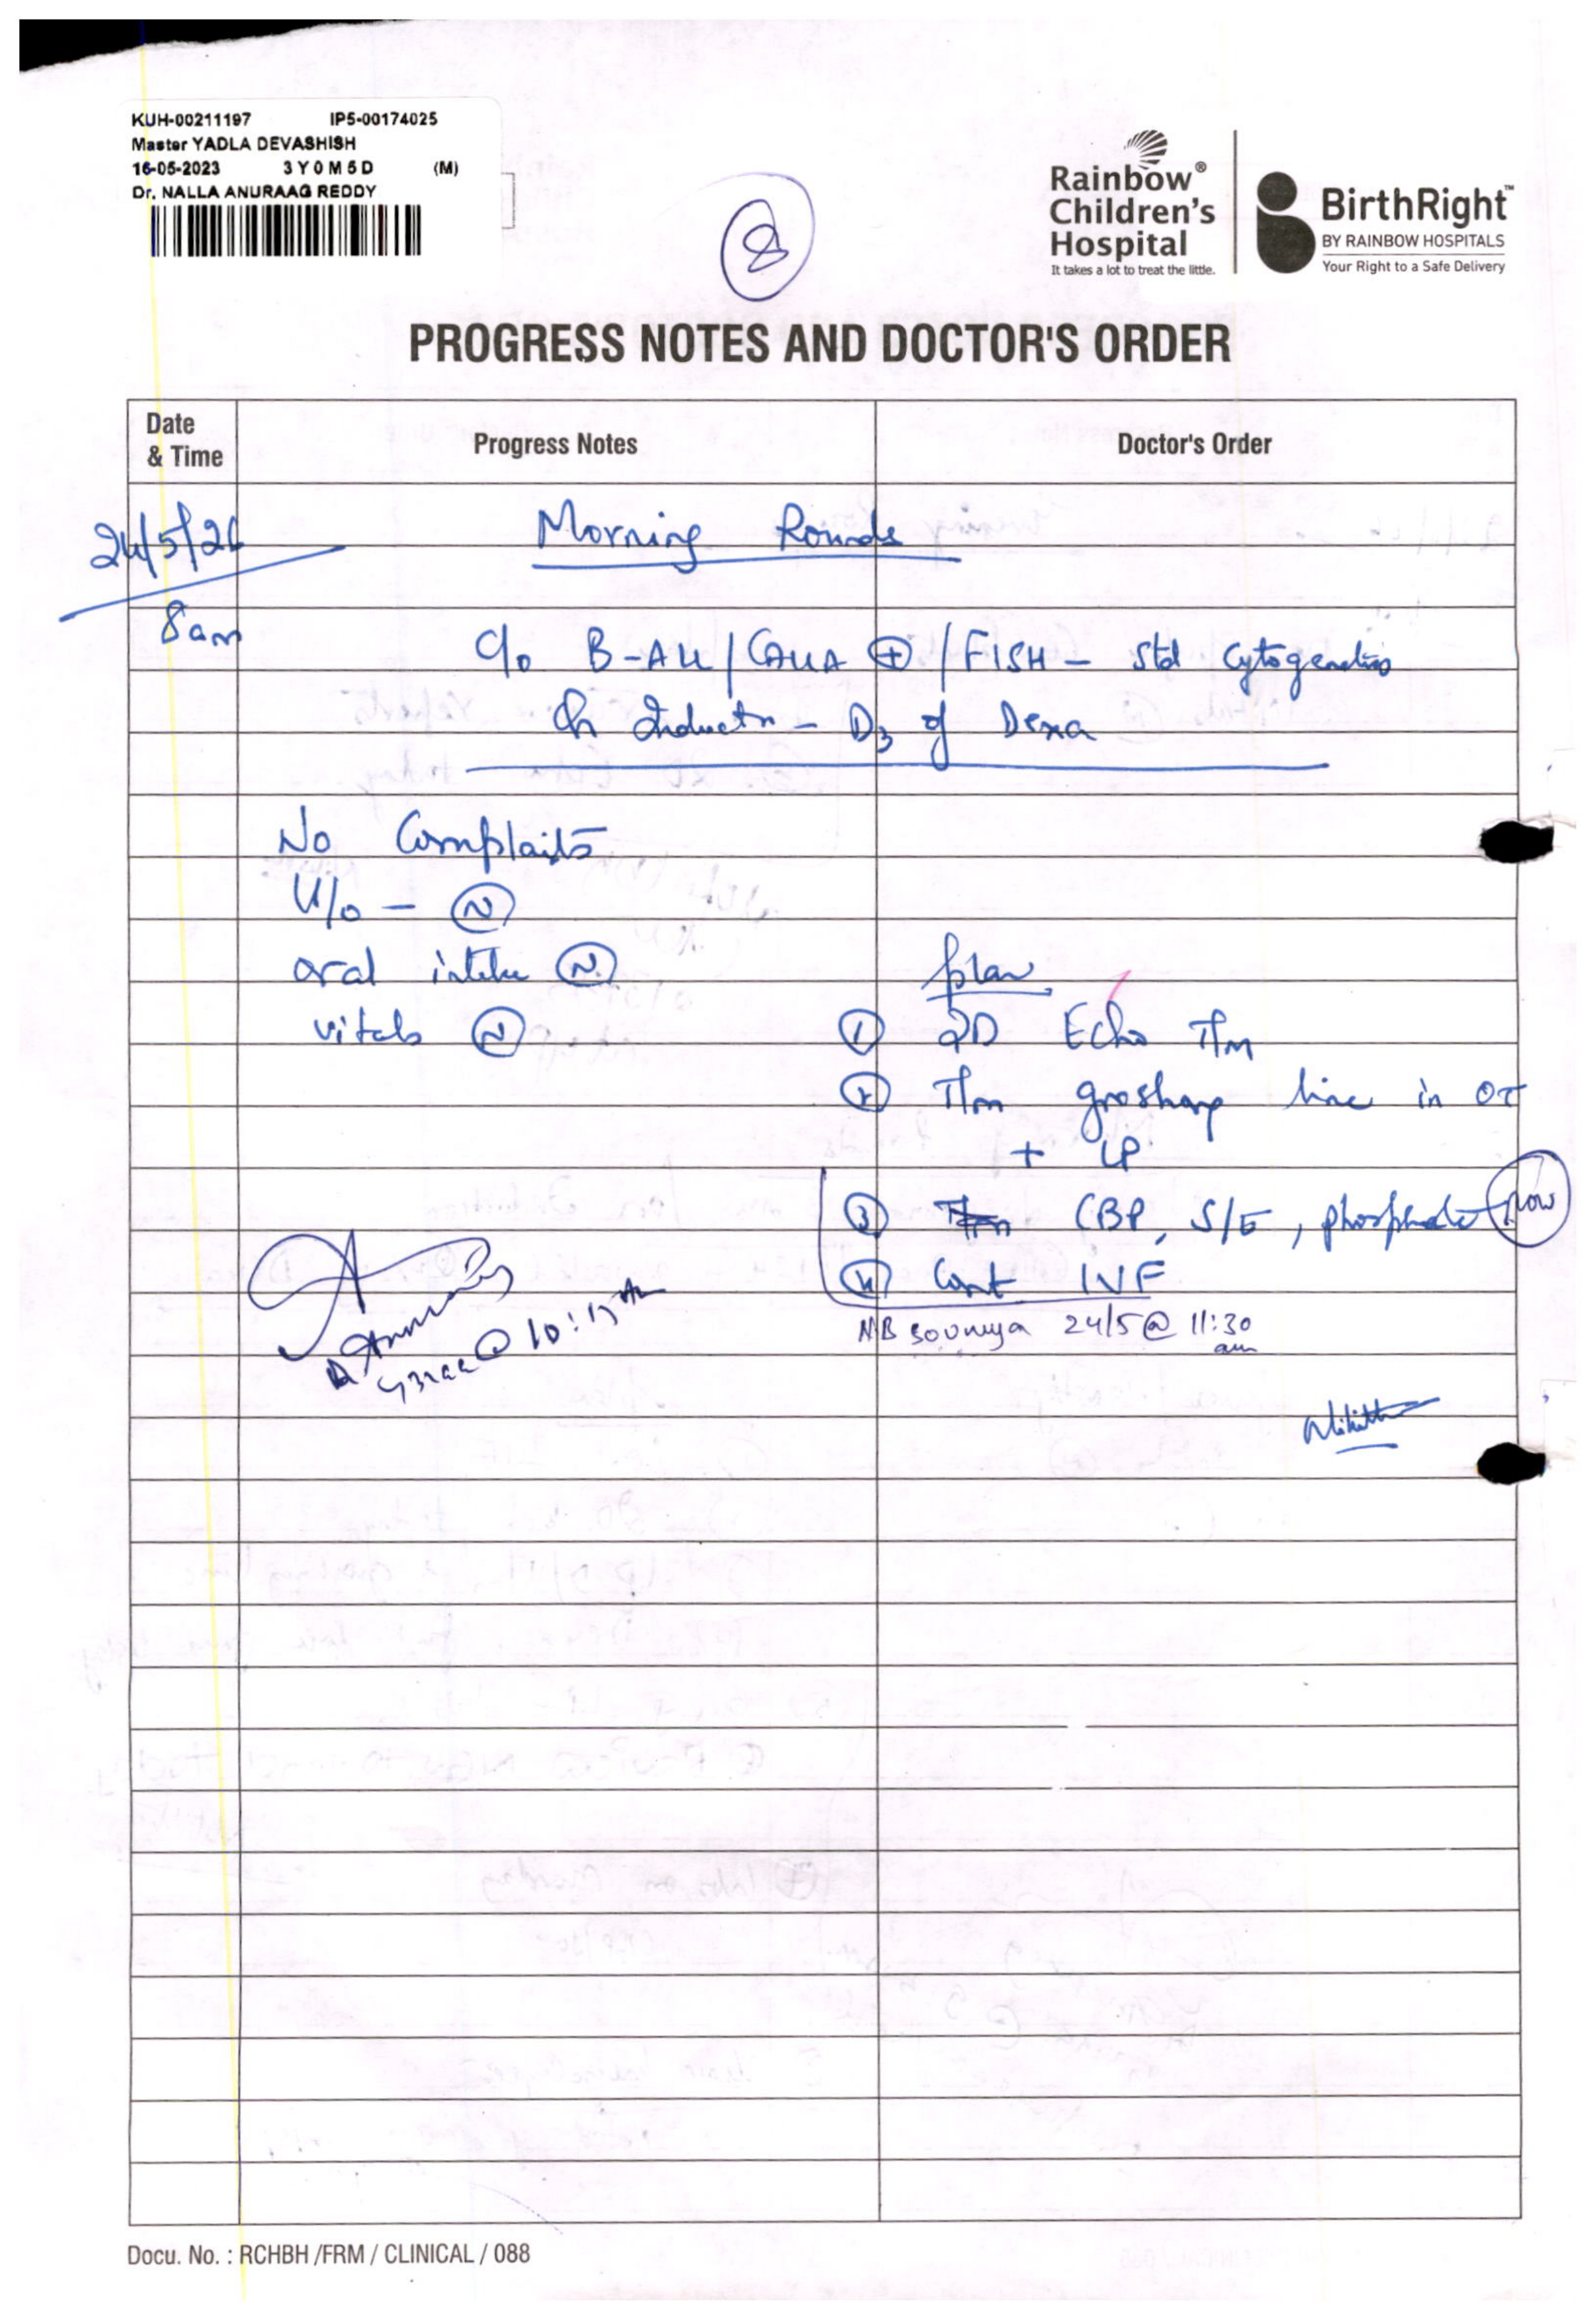 KUH-00211197 IP5-00174025
Master YADLA DEVASHISH
16-05-2023 3Y0M5D (M)
Dr. NALLA ANURAAG REDDY
8
Rainbow®
Children's
Hospital
It takes a lot to treat the little.
BirthRight™
BY RAINBOW HOSPITALS
Your Right to a Safe Delivery
PROGRESS NOTES AND DOCTOR'S ORDER
Date & Time Progress Notes Doctor's Order
24/5/26 Morning Rounds
8am
c/o B-ALL / CALLA ⊕ / FISH - Std Cytogenetics
On Inductn - D3 of Dexa
No Complaits
U/o - N
oral intake N
plan
vitals N
1 2D Echo T/m
2 T/m groshang line in OT
+ LP
3 CBP, S/E, phosphate now
4 Cont IVF
@ 10:15 AM
NB sounya 24/5 @ 11:30 am
Docu. No. : RCHBH /FRM / CLINICAL / 088